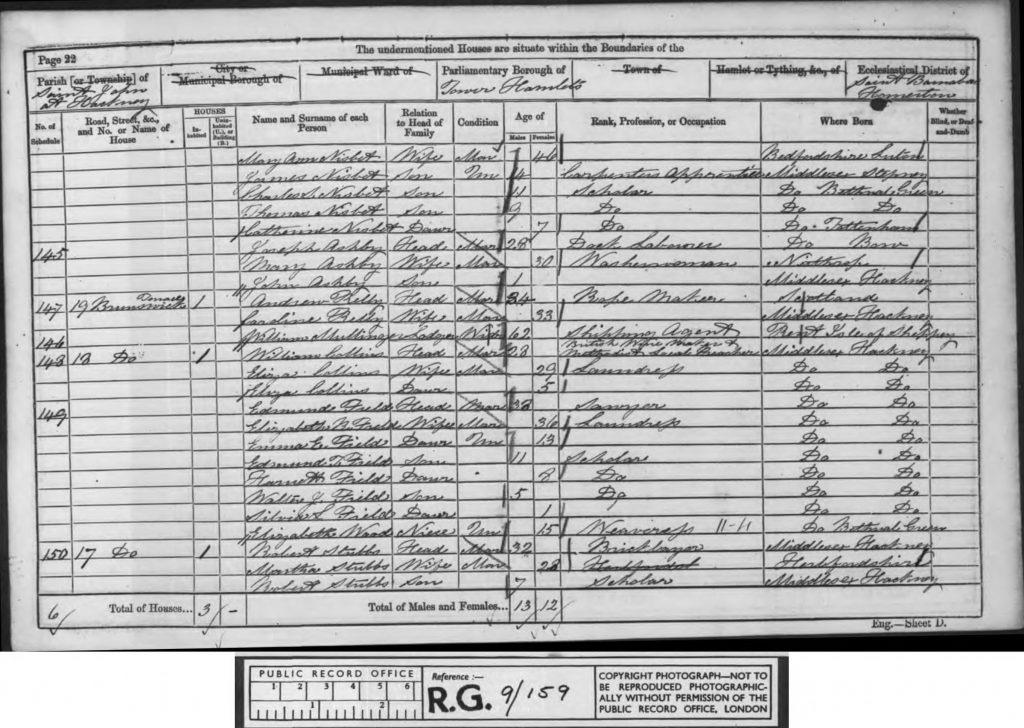 Page 22
The undermentioned Houses are situate within the Boundaries of the
Parish [or Township] of
Saint John
at Hackney
City or
Municipal Borough of
Municipal Ward of
Parliamentary Borough of
Tower Hamlets
Town of
Hamlet or Tything, &c., of
Ecclesiastical District of
Saint Barnabas
Homerton
No. of Schedule
Road, Street, &c., and No. or Name of House
HOUSES
Inhabited
Uninhabited (U.), or Building (B.)
Name and Surname of each Person
Relation to Head of Family
Condition
Age of
Males
Females
Rank, Profession, or Occupation
Where Born
Whether Blind, or Deaf-and-Dumb
Mary Ann Nisbet Wife Mar 46 Bedfordshire Luton
James Nisbet Son Un 14 Carpenters Apprentice Middlesex Stepney
Charles S Nisbet Son 11 Scholar Do Bethnal Green
Thomas Nisbet Son 9 Do Do Do
Catherine Nisbet Daur 7 Do Do Tottenham
145 Joseph Ashby Head Mar 28 Dock Labourer Do Bow
Mary Ashby Wife Mar 30 Washerwoman
John Ashby Son 1 Middlesex Hackney
147 19 Brunswick Terrace 1 Andrew Head Mar 34 Rope Maker Scotland
Caroline Wife Mar 33 Middlesex Hackney
146 William Lodger 62 Shipping Agent Kent Isle of Sheppey
148 18 Do 1 William Collins Head Mar 28 British Wine Maker & Middlesex Hackney
Eliza Collins Wife Mar 29 Laundress Do Do
Eliza Collins Daur 5 Do Do
149 Edmund Field Head Mar 38 Sawyer Do Do
Elizabeth N Field Wife Mar 36 Laundress Do Do
Emma E Field Daur Un 13 Do Do
Edmund T Field Son 11 Scholar Do Do
Field Daur 8 Do Do Do
Walter J Field Son 5 Do Do Do
Silvia L Field Daur 1 Do Do
Elizabeth Wood Niece Un 15 Weaveress 11-11 Do Bethnal Green
150 17 Do 1 Robert Stubbs Head Mar 32 Bricklayer Middlesex Hackney
Martha Stubbs Wife Mar 28 Hertfordshire
Robert Stubbs Son 7 Scholar Middlesex Hackney
6 Total of Houses... 3 - Total of Males and Females... 13 12
Eng.—Sheet D.
PUBLIC RECORD OFFICE
1 2 3 4 5 6
1 2
Reference :—
R.G. 9/159
COPYRIGHT PHOTOGRAPH—NOT TO
BE REPRODUCED PHOTOGRAPHIC-
ALLY WITHOUT PERMISSION OF THE
PUBLIC RECORD OFFICE, LONDON